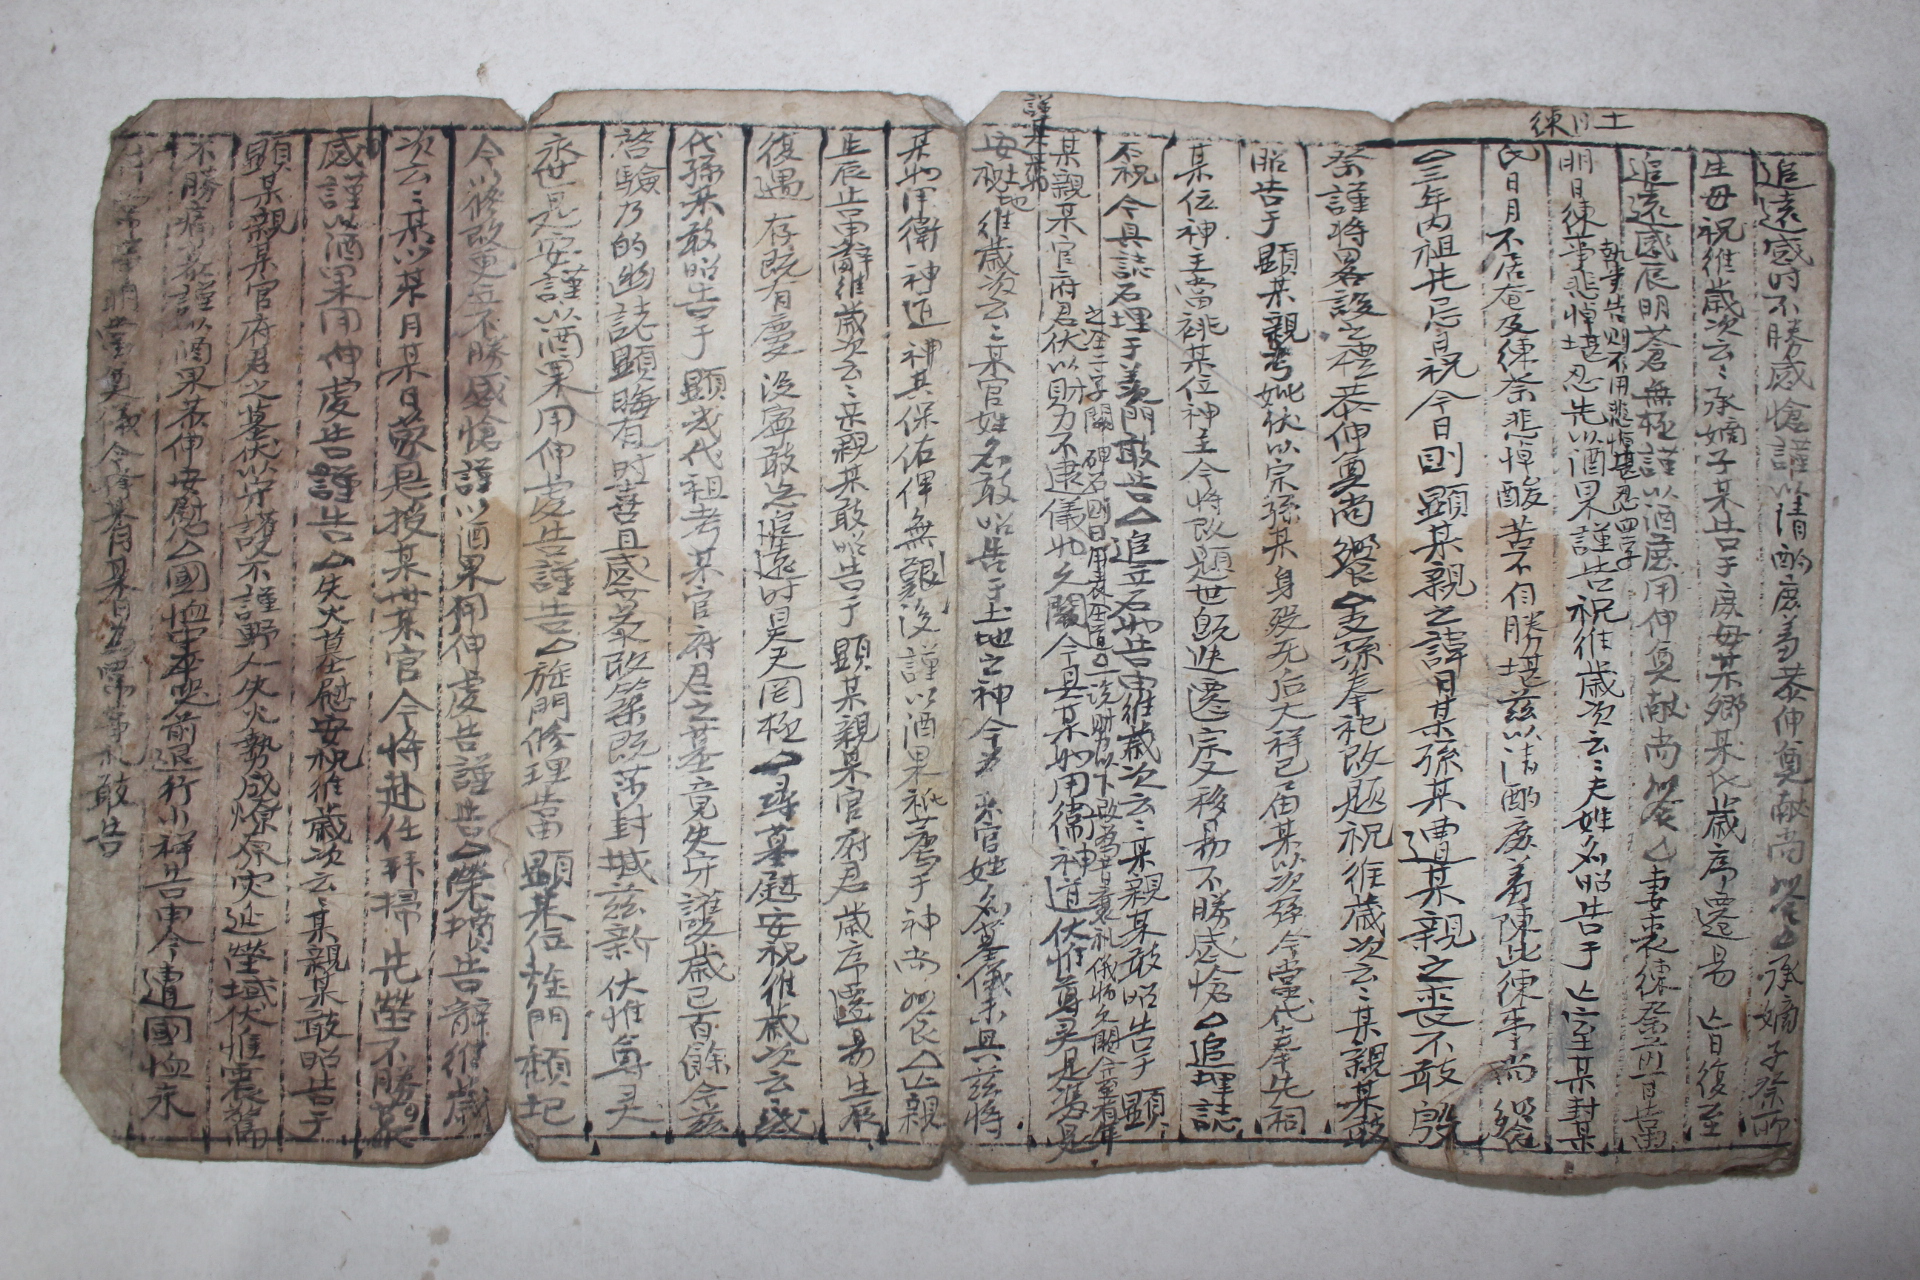 追遠感時不勝感愴謹以淸酌庶羞恭伸奠獻尚饗△承嫡子祭所
生母祝維歲次云〻承嫡子某告于庶母某鄕某氏歲序遷易 亡日復至
追遠感辰明蒼無極謹以酒庶用伸奠獻尚饗△妻喪練祭前一日告
執事告則不用悲悼堪忍四字
明日練事悲悼堪忍先以酒果謹告祝維歲次云〻夫姓名昭告于亡室某封某
氏日月不居奄及練祭悲悼酸苦不自勝堪玆以淸酌庶羞陳此練事尚饗
△三年內祖先忌日祝今日則顯某親之諱日某孫某遭某親之喪不敢殷
祭謹將畧設之禮恭伸奠尚饗△支孫奉祀改題祝維歲次云〻某親某敢
昭告于 顯某親考妣伏以宗孫某身歿无后大祥已届某以次孫今當代奉先祠
某位神主當祧某位神主今將改題世旣迭遷宗又移易不勝感愴△追埋誌
石祝今具誌石埋于羨門敢告△追立石物告由維歲次云〻某親某敢昭告于 顯
某親某官府君伏以財力不逮儀物久闕今具某物用衛神道伏惟尊灵是憑是
安 土地祝維歲次云〻某官姓名敢昭告于土地之神今爲某官姓名墓儀未具玆將
某物用衛神道 神其保佑俾無艱後謹以酒果祗薦于神尚饗△亡親
生辰告由辭維歲次云〻某親某敢昭告于 顯某親某官府君歲序遷易生辰
復遇 存旣有慶 沒寧敢忘追遠時昊天罔極△尋墓慰安祝維歲次云〻幾
代孫某敢昭告于 顯幾代祖考某官府君之墓竟失守護歲已百餘今玆
啓驗乃的幽誌顯晦有時喜且感 敢築旣莎封域玆新 伏惟尊灵
永世是安謹以酒果用伸虔告謹告△旌門修理告由 顯某位旌門頹圮
今以修改更立不勝感愴謹以酒果用伸虔告謹告△榮墳告辭維歲
次云〻某以某月某日蒙恩授某母某官今將赴任拜掃 先塋不勝
感謹以酒果用伸虔告謹告△失火墓慰安祝維歲次云〻某親某敢昭告于
顯某親某官府君之墓伏以守護不謹野人失火勢成燎原灾延塋域伏惟震驚
不勝痛 謹以酒果恭伸安慰△國恤 前退行小祥告由今遭國恤未
奠儀今 某月某日 敢告